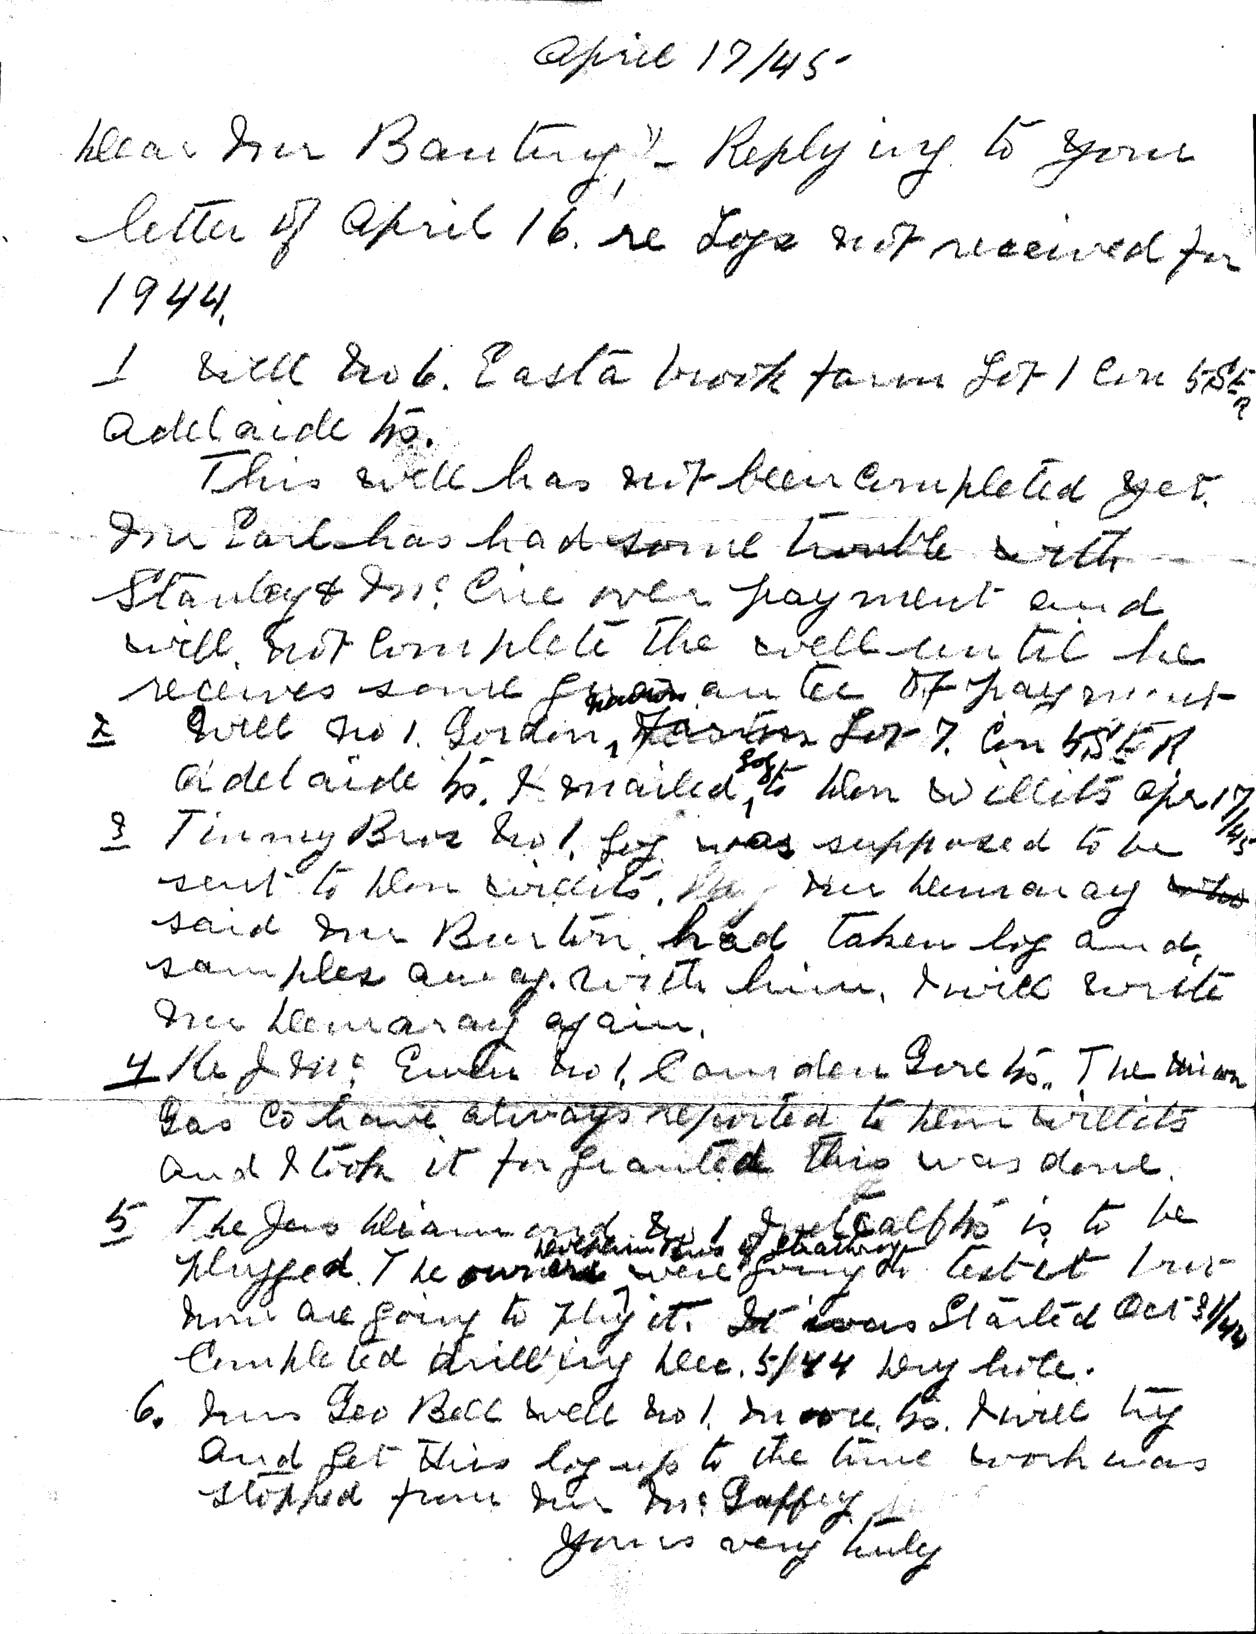 April 17/45
Dear Mr Banting,- Replying to your
letter of April 16. re Logs not received for
1944.
1 Well No 6. Easta brook farm Lot 1 Con 5 S E R
Adelaide Tp.
This well has not been completed yet.
Mr Earl has had some trouble with
Stanley & Mc Crie over payment and
will not complete the well until he
receives some guarantee of payment
2 Well No 1. Gordon, Lot 7. Con 5 S E R
Adelaide Tp. I mailed log to Don Willits Apr 17/45
3 Tinney Bros No 1. Log was supposed to be
sent to Don Willits. Mr Demaray who
said Mr Burton had taken log and
samples away with him. I will write
Mr Demaray again.
4 Re J Mc Ewen No 1. Camden Gore Tp. The Union
Gas Co have always reported to Don Willits
and I took it for granted this was done.
5 The Jas Diamond No 1 Metcalf Tp is to be
plugged. The owners were going to test it but
now are going to plug it. It was Started Oct 31/44
Completed drilling Dec. 5/44 Dry hole.
6. Mrs Geo Bell well No 1. Moore Tp. I will try
and get this log up to the time work was
stopped from Mr Mc Gaffey
Yours very truly